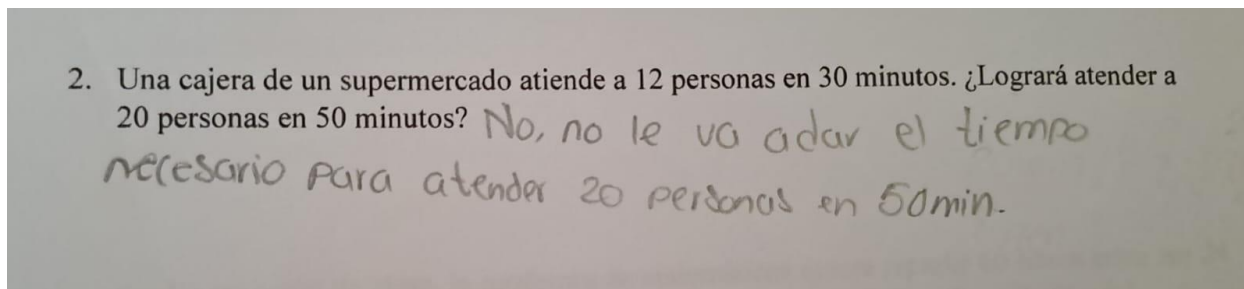 2. Una cajera de un supermercado atiende a 12 personas en 30 minutos. ¿Logrará atender a
20 personas en 50 minutos? No, no le va adar el tiempo
necesario para atender 20 personas en 50min.